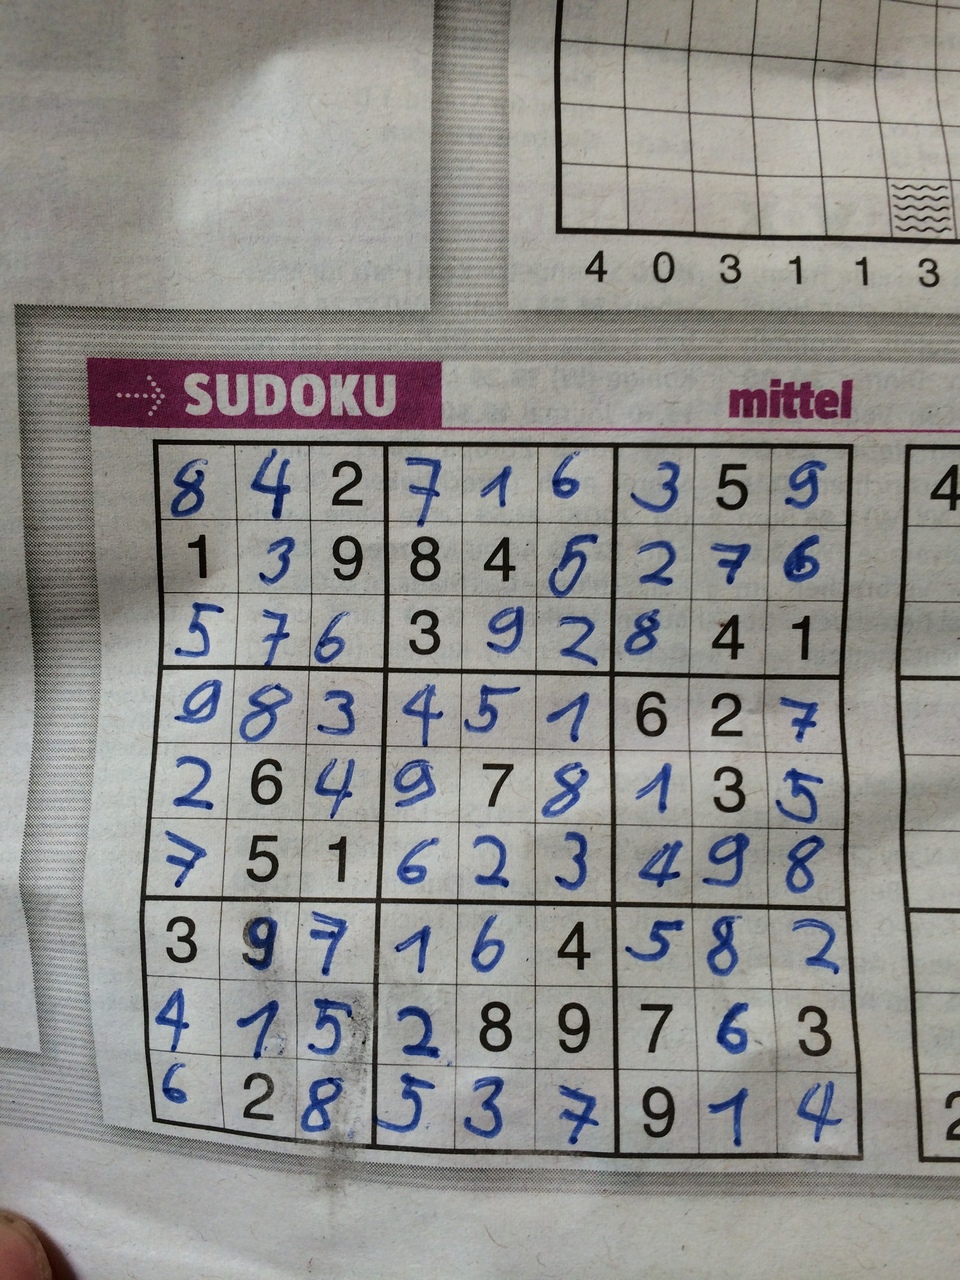 4 0 3 1 1 3
SUDOKU mittel
8 4 2 7 1 6 3 5 9
1 3 9 8 4 5 2 7 6
5 7 6 3 9 2 8 4 1
9 8 3 4 5 1 6 2 7
2 6 4 9 7 8 1 3 5
7 5 1 6 2 3 4 9 8
3 9 7 1 6 4 5 8 2
4 1 5 2 8 9 7 6 3
6 2 8 5 3 7 9 1 4
4
2